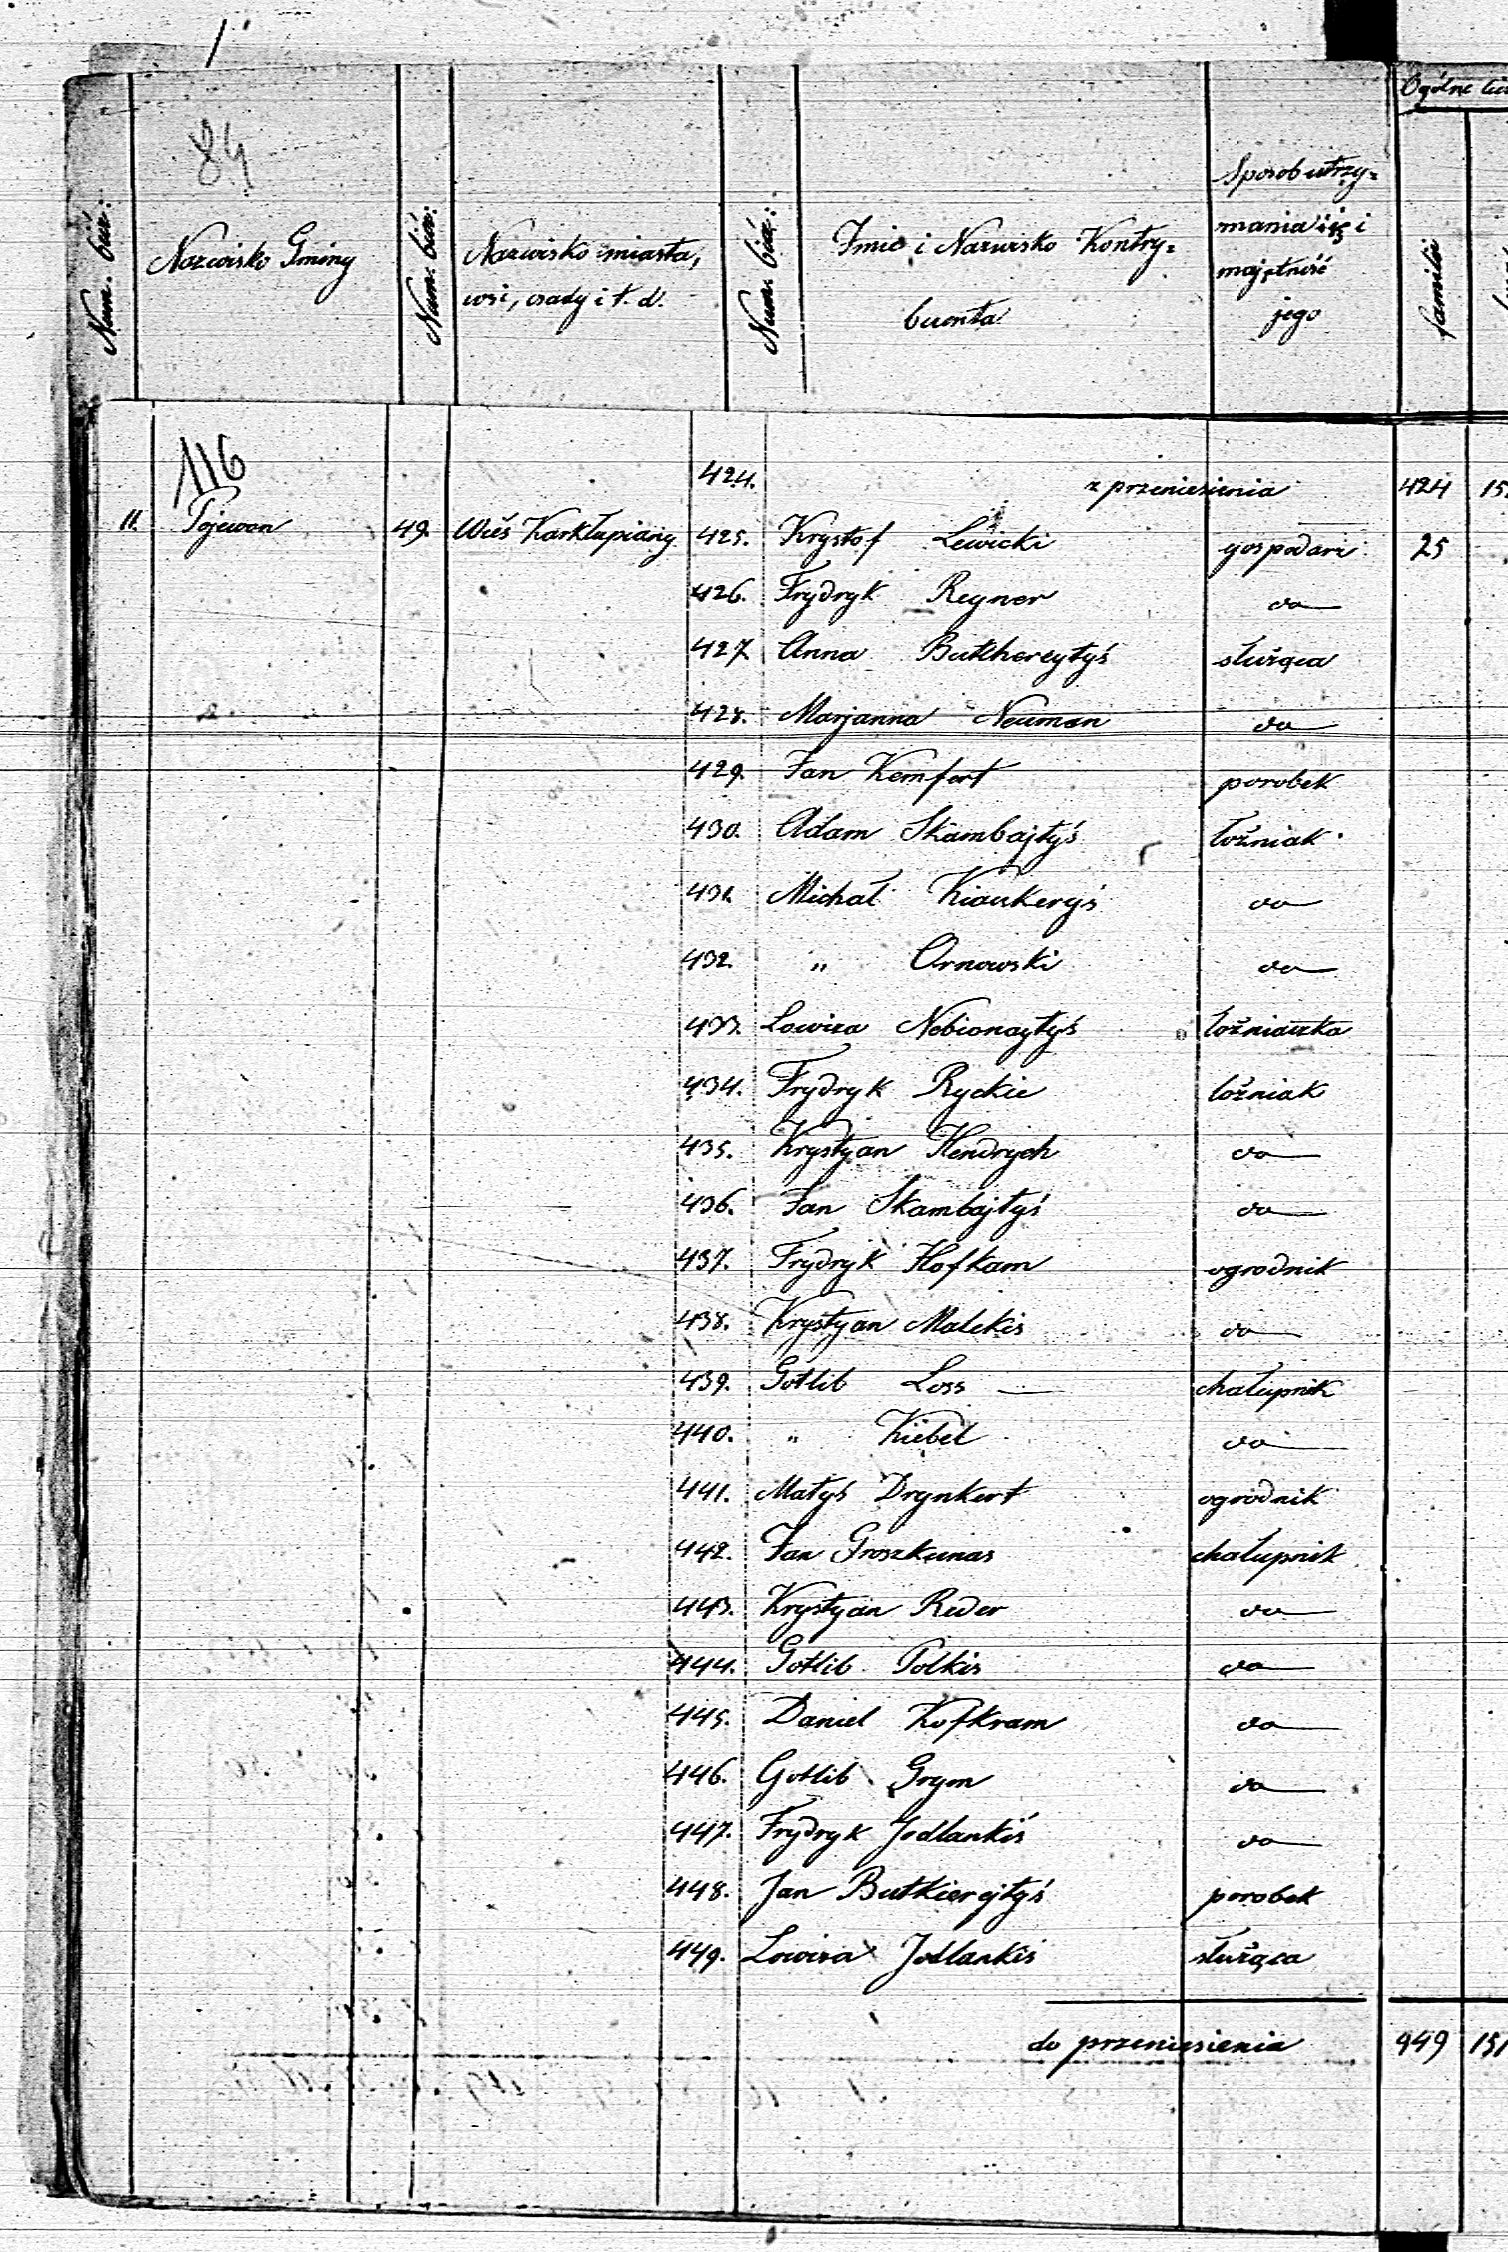 84
Ogólne
Num. bież:
Nazwisko Gminy
Num. bież:
Nazwisko miasta,
wsi, osady i t. d.
Num. bież:
Imie i Nazwisko Kontry=
buenta
Sposob utrzy=
mania się i
majętność
jego
familii
116
424. z przeniesienia 424
11. Pojewon 49. Wieś Karkłupiany 425. Krystof Lewicki gospodarz 25
426. Frydryk Reyner do
427. Anna Butkhereytyś służąca
428. Marjanna Neuman do
429. Jan Kemfert porobek
430. Adam Skambajtyś łoźniak
431. Michał Kiaukeryś do
432. " Ornowski do
433. Lowiza Nebionaytyś łoźniaczka
434. Frydryk Ryckie łoźniak
435. Krystyan Hendrych do
436. Jan Skambajtyś do
437. Frydryk Hofkam ogrodnik
438. Krystyan Malekis do
439. Gotlib Loss — chałupnik
440. " Kiebel do
441. Matyś Drynkert ogrodnik
442. Jan Groszkunas chałupnik
443. Krystyan Reder do
444. Gotlib Polkis do
445. Daniel Kofkram do
446. Gotlib Grym do
447. Frydryk Jodlankis do
448. Jan Butkierejtyś porobek
449. Lowiza Jodlankis służąca
do przeniesienia 449